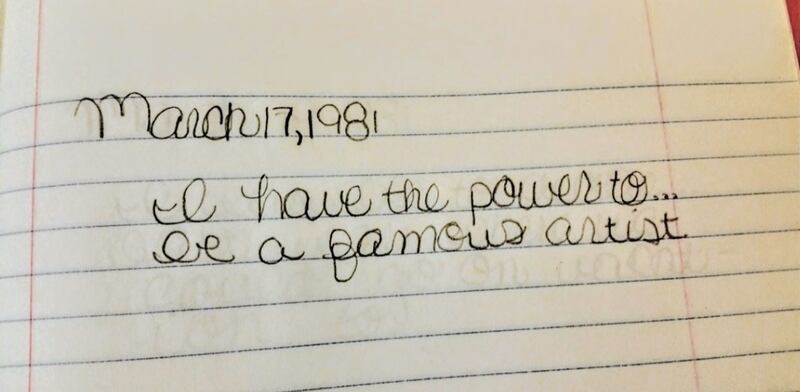 March 17, 1981
I have the power to...
be a famous artist